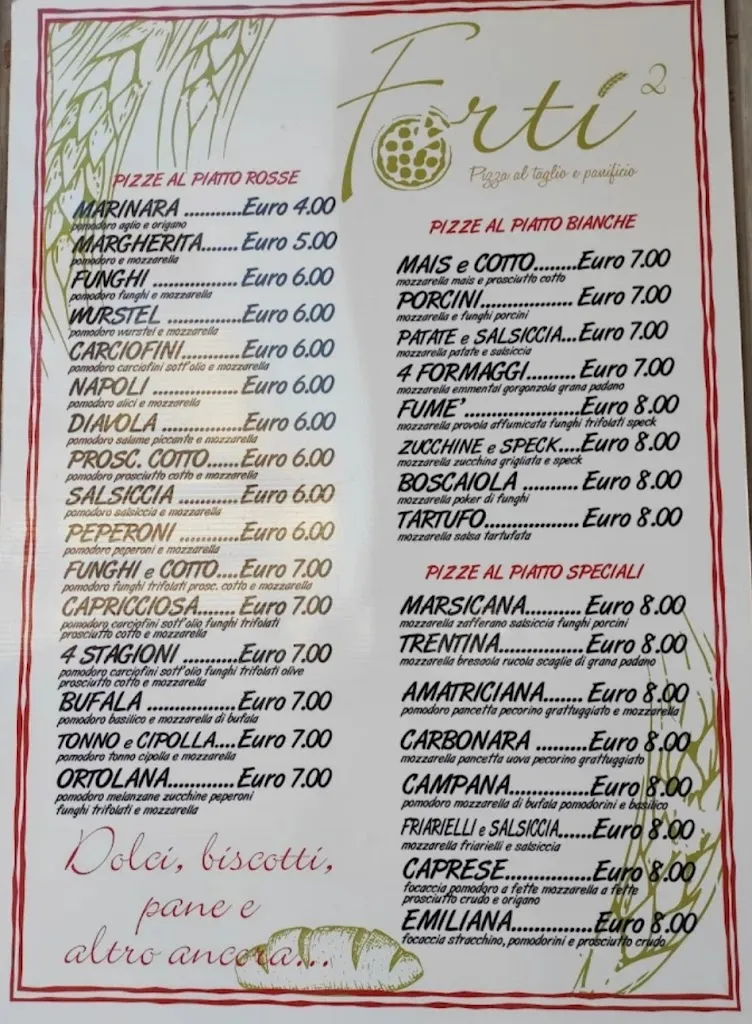 Forti 2
Pizza al taglio e panificio
PIZZE AL PIATTO ROSSE
MARINARA ...........Euro 4.00
pomodoro aglio e origano
MARGHERITA.......Euro 5.00
pomodoro e mozzarella
FUNGHI ................Euro 6.00
pomodoro funghi e mozzarella
WURSTEL ..............Euro 6.00
pomodoro wurstel e mozzarella
CARCIOFINI...........Euro 6.00
pomodoro carciofini sott'olio e mozzarella
NAPOLI ................Euro 6.00
pomodoro alici e mozzarella
DIAVOLA ...............Euro 6.00
pomodoro salame piccante e mozzarella
PROSC. COTTO......Euro 6.00
pomodoro prosciutto cotto e mozzarella
SALSICCIA ...........Euro 6.00
pomodoro salsiccia e mozzarella
PEPERONI ............Euro 6.00
pomodoro peperoni e mozzarella
FUNGHI e COTTO....Euro 7.00
pomodoro funghi trifolati prosc. cotto e mozzarella
CAPRICCIOSA.......Euro 7.00
pomodoro carciofini sott'olio funghi trifolati
prosciutto cotto e mozzarella
4 STAGIONI ..........Euro 7.00
pomodoro carciofini sott'olio funghi trifolati olive
prosciutto cotto e mozzarella
BUFALA ................Euro 7.00
pomodoro basilico e mozzarella di bufala
TONNO e CIPOLLA....Euro 7.00
pomodoro tonno cipolla e mozzarella
ORTOLANA............Euro 7.00
pomodoro melanzane zucchine peperoni
funghi trifolati e mozzarella
Dolci, biscotti,
pane e
altro ancora...
PIZZE AL PIATTO BIANCHE
MAIS e COTTO........Euro 7.00
mozzarella mais e prosciutto cotto
PORCINI................Euro 7.00
mozzarella e funghi porcini
PATATE e SALSICCIA...Euro 7.00
mozzarella patate e salsiccia
4 FORMAGGI.........Euro 7.00
mozzarella emmental gorgonzola grana padano
FUME'.....................Euro 8.00
mozzarella provola affumicata funghi trifolati speck
ZUCCHINE e SPECK....Euro 8.00
mozzarella zucchina grigliata e speck
BOSCAIOLA ..........Euro 8.00
mozzarella poker di funghi
TARTUFO.................Euro 8.00
mozzarella salsa tartufata
PIZZE AL PIATTO SPECIALI
MARSICANA..........Euro 8.00
mozzarella zafferano salsiccia funghi porcini
TRENTINA..............Euro 8.00
mozzarella bresaola rucola scaglie di grana padano
AMATRICIANA.......Euro 8.00
pomodoro pancetta pecorino grattuggiato e mozzarella
CARBONARA .........Euro 8.00
mozzarella pancetta uova pecorino grattuggiato
CAMPANA..............Euro 8.00
pomodoro mozzarella di bufala pomodorini e basilico
FRIARIELLI e SALSICCIA......Euro 8.00
mozzarella friarielli e salsiccia
CAPRESE...............Euro 8.00
focaccia pomodoro a fette mozzarella a fette
prosciutto crudo e origano
EMILIANA..............Euro 8.00
focaccia stracchino, pomodorini e prosciutto crudo